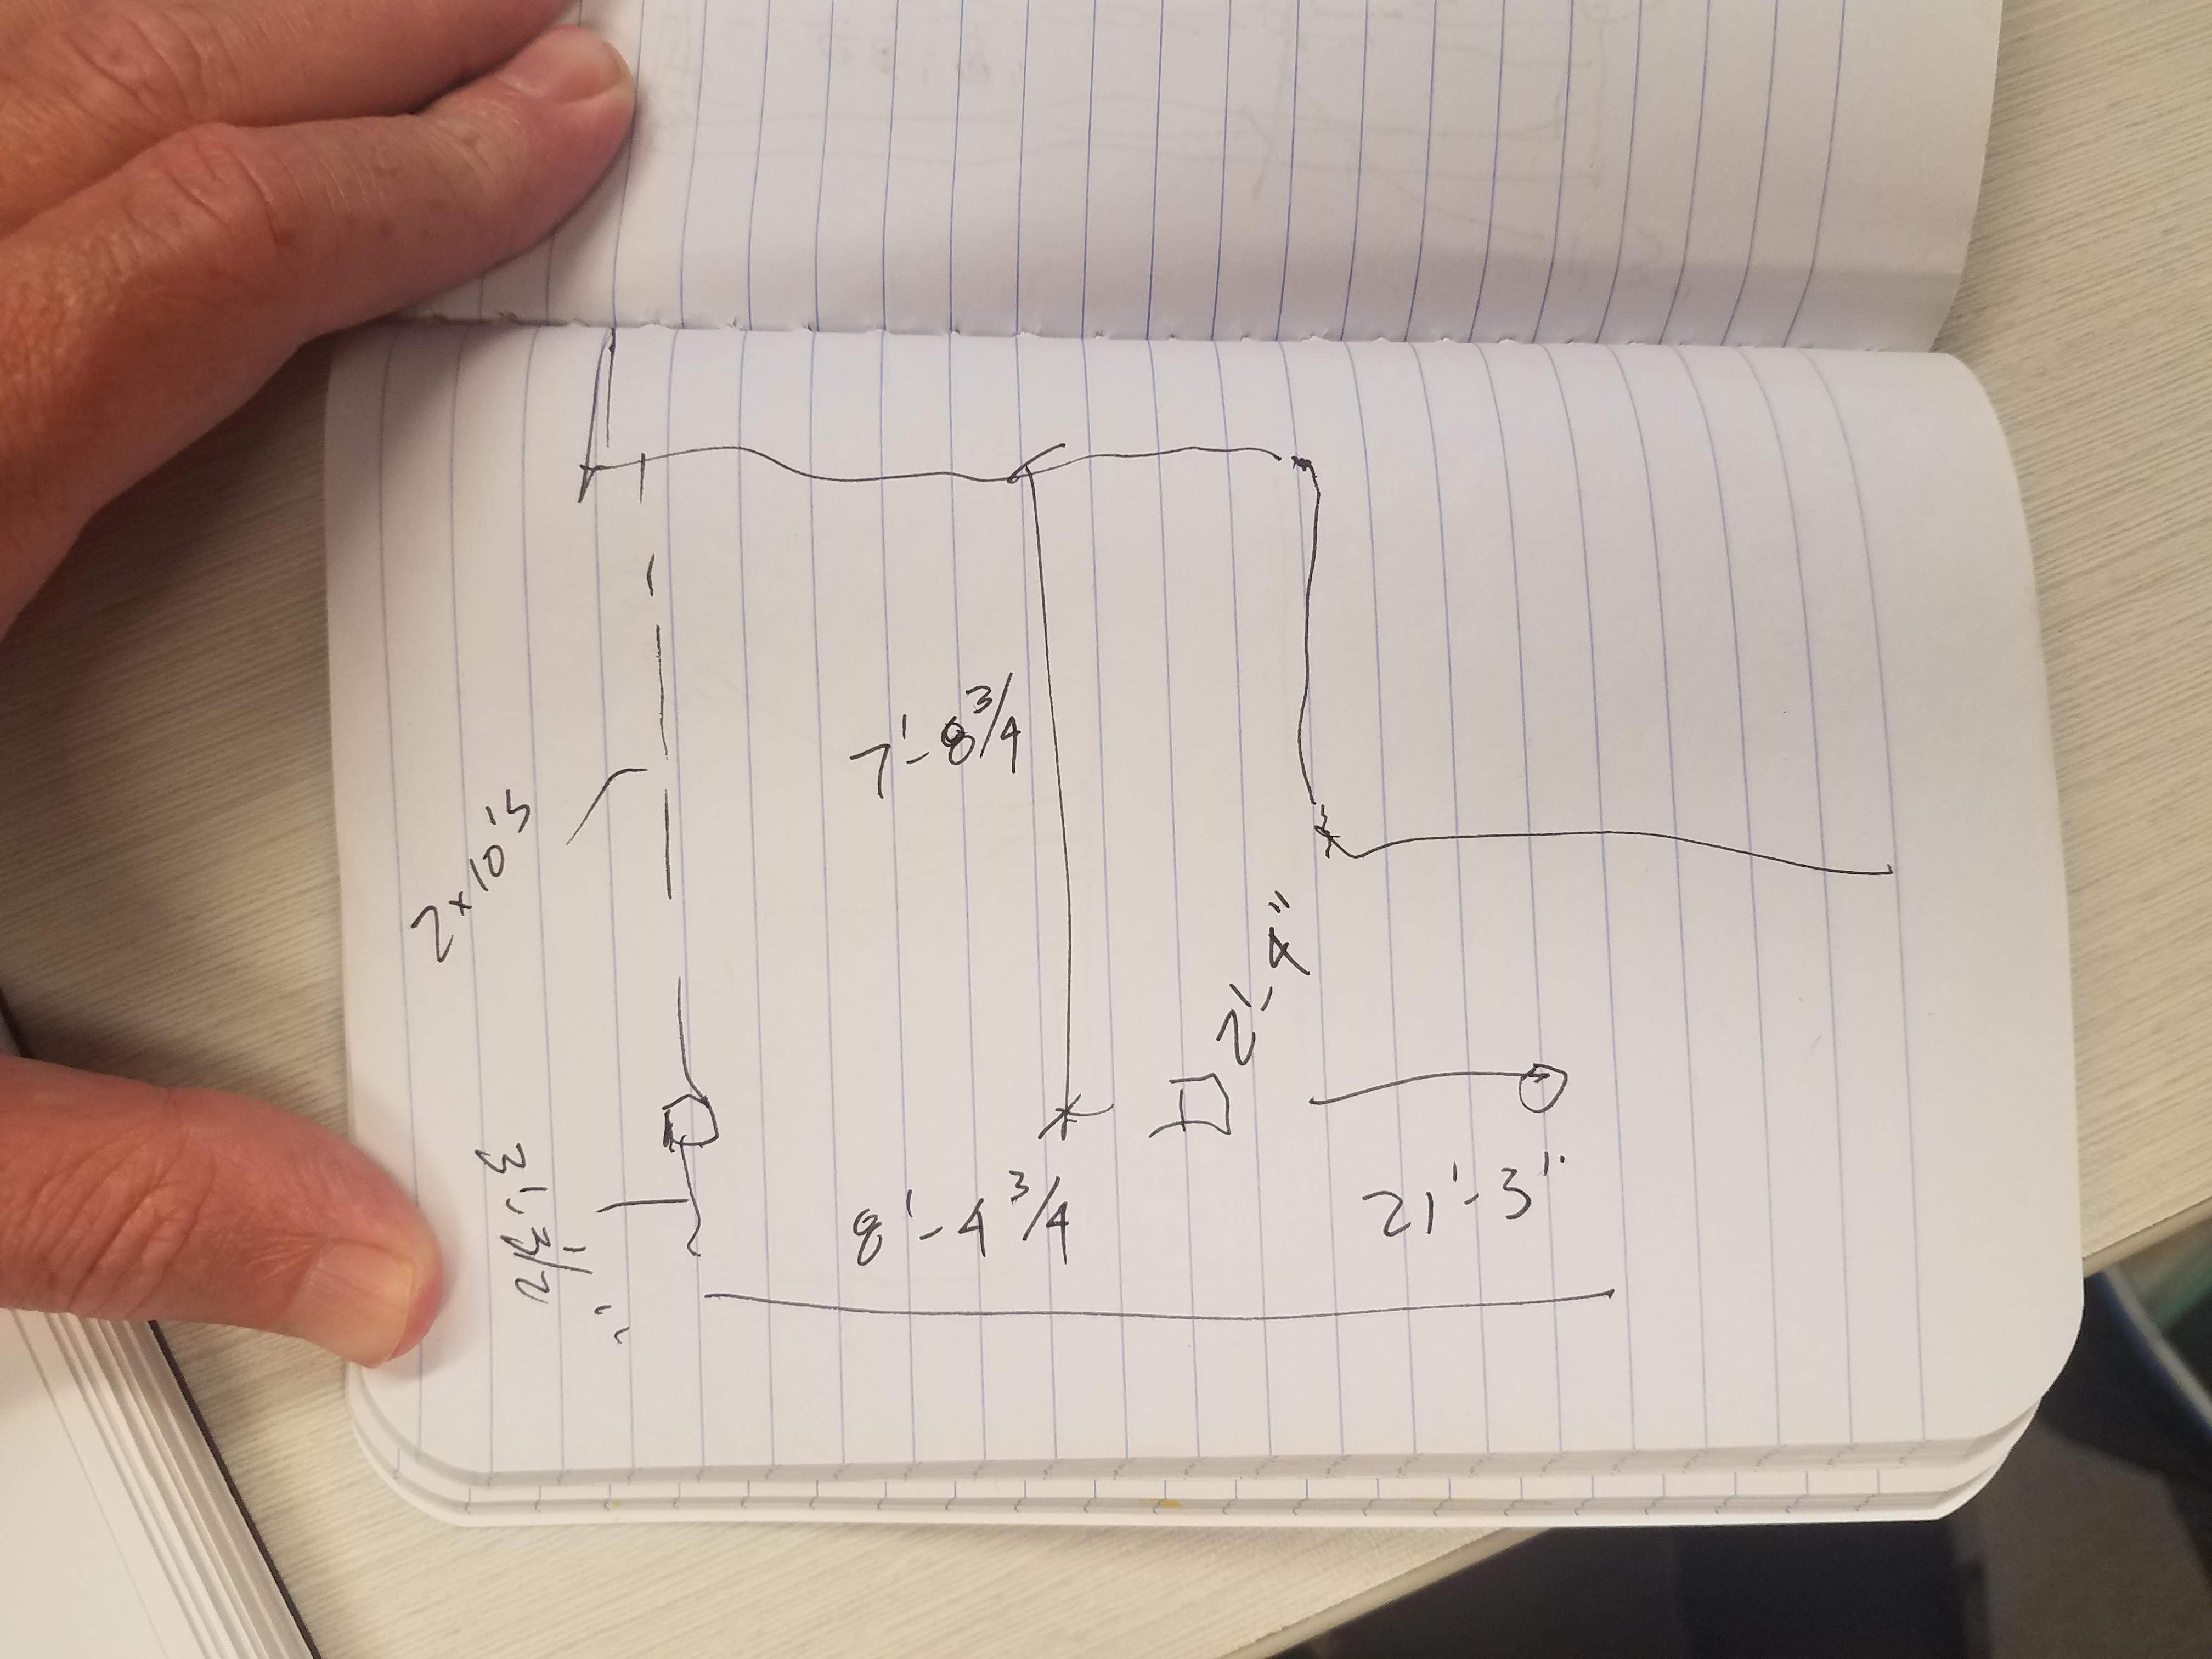 7'-8 3/4
2x10's
2'-4"
3'-3 1/2"
8'-4 3/4
21'-3"